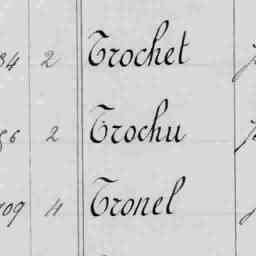 84 2 Trochet
2 Trochu
709 4 Tronel